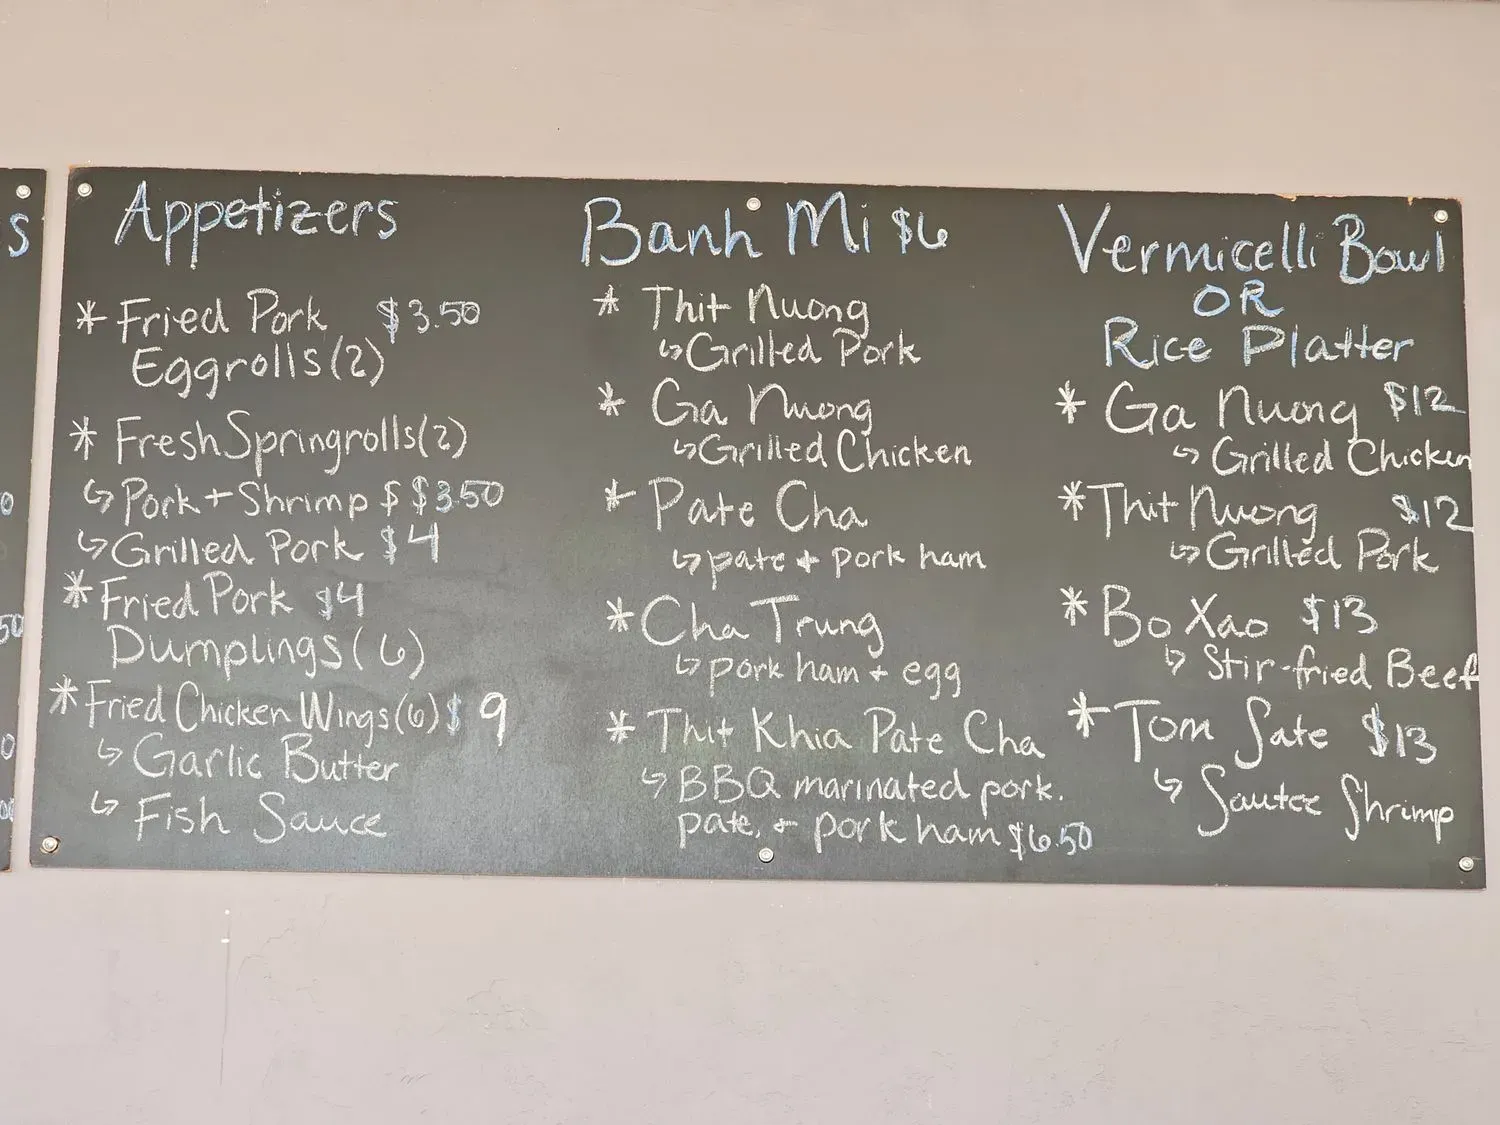 Appetizers
* Fried Pork $3.50
Eggrolls (2)
* Fresh Springrolls (2)
↳ Pork + Shrimp $ $3.50
↳ Grilled Pork $4
* Fried Pork $4
Dumplings (6)
* Fried Chicken Wings (6) $9
↳ Garlic Butter
↳ Fish Sauce
Banh Mi $6
* Thit Nuong
↳ Grilled Pork
* Ga Nuong
↳ Grilled Chicken
* Pate Cha
↳ pate + pork ham
* Cha Trung
↳ pork ham + egg
* Thit Khia Pate Cha
↳ BBQ marinated pork,
pate, + pork ham $6.50
Vermicelli Bowl
OR
Rice Platter
* Ga Nuong $12
↳ Grilled Chicken
* Thit Nuong $12
↳ Grilled Pork
* Bo Xao $13
↳ Stir-fried Beef
* Tom Sate $13
↳ Sautee Shrimp